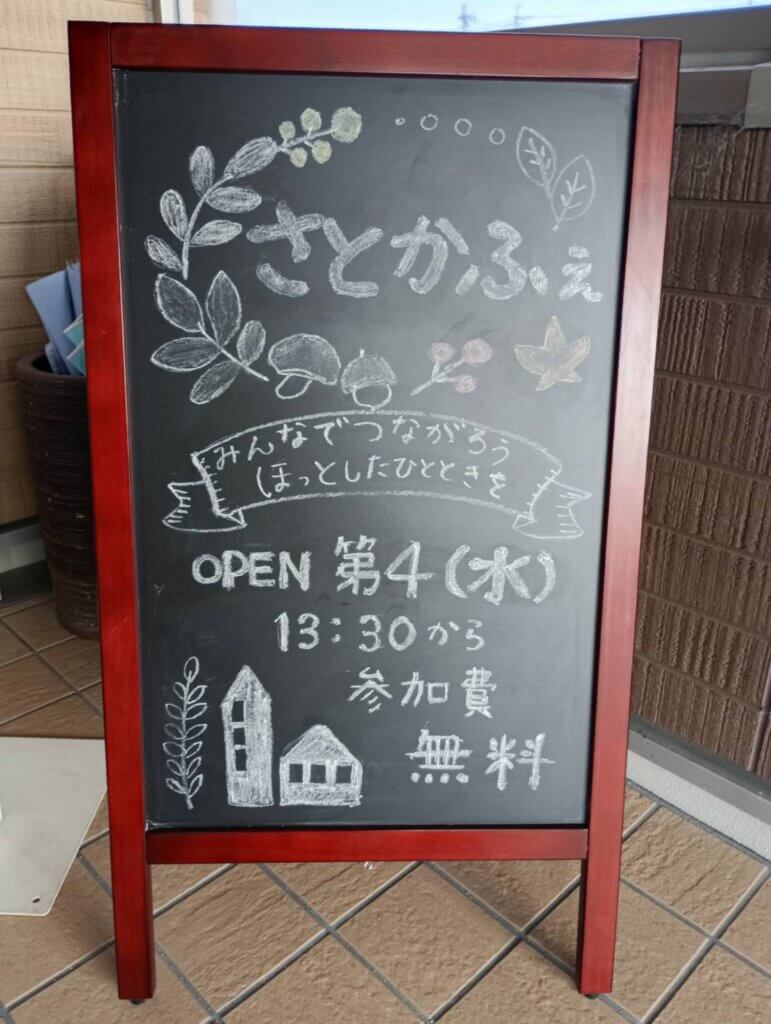 さとかふぇ
みんなでつながろう
ほっとしたひとときを
OPEN 第4(水)
13:30から
参加費
無料